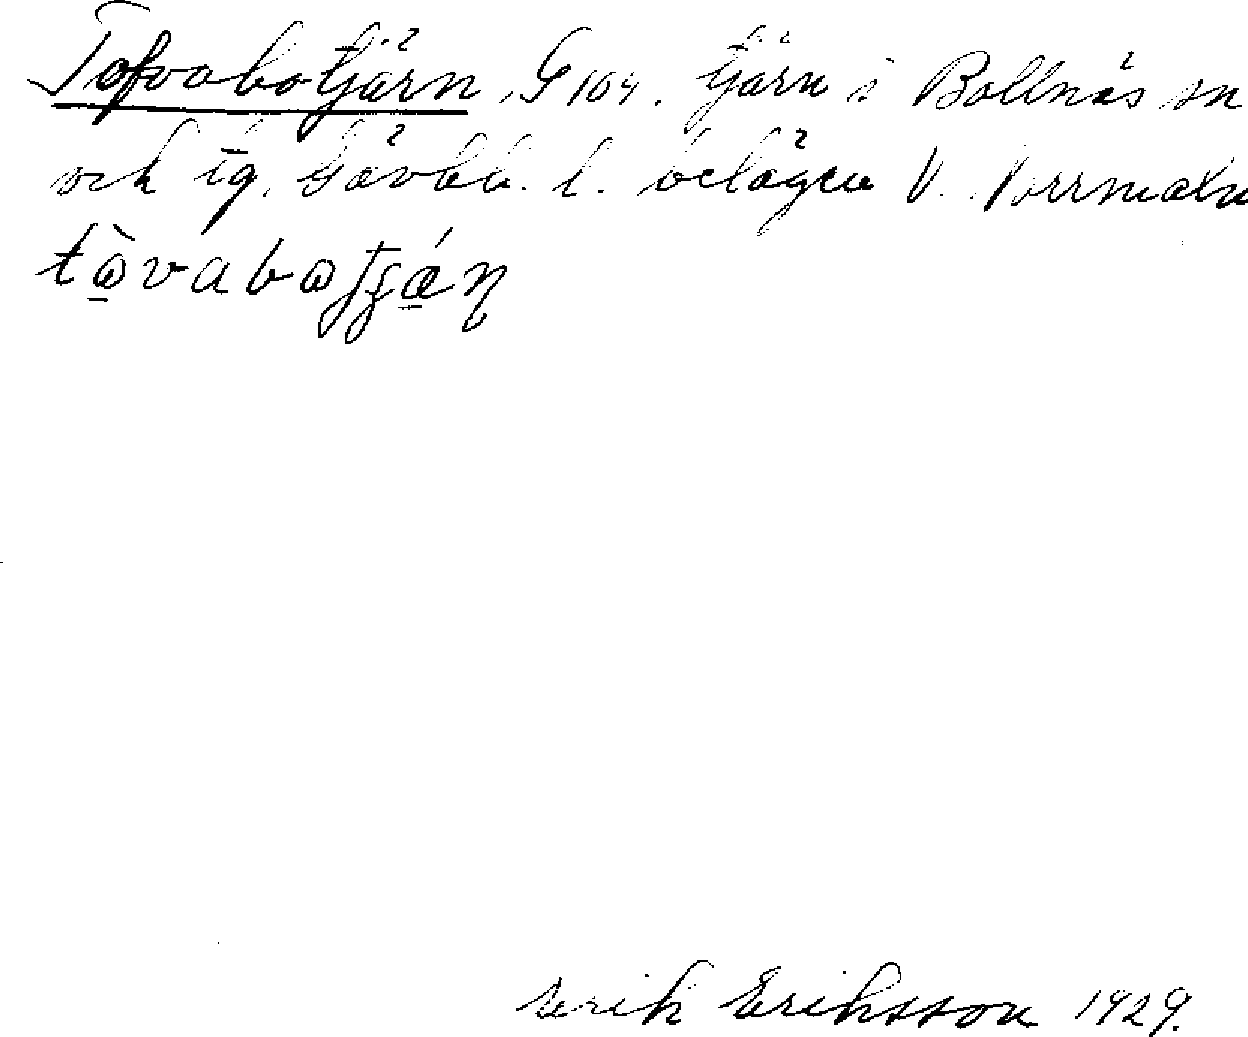 Tofvabotjärn, G 104. tjärn i Bollnäs sn
och tg, Gävleb. l. belägen V. Norrmaln
Erik Eriksson 1929.